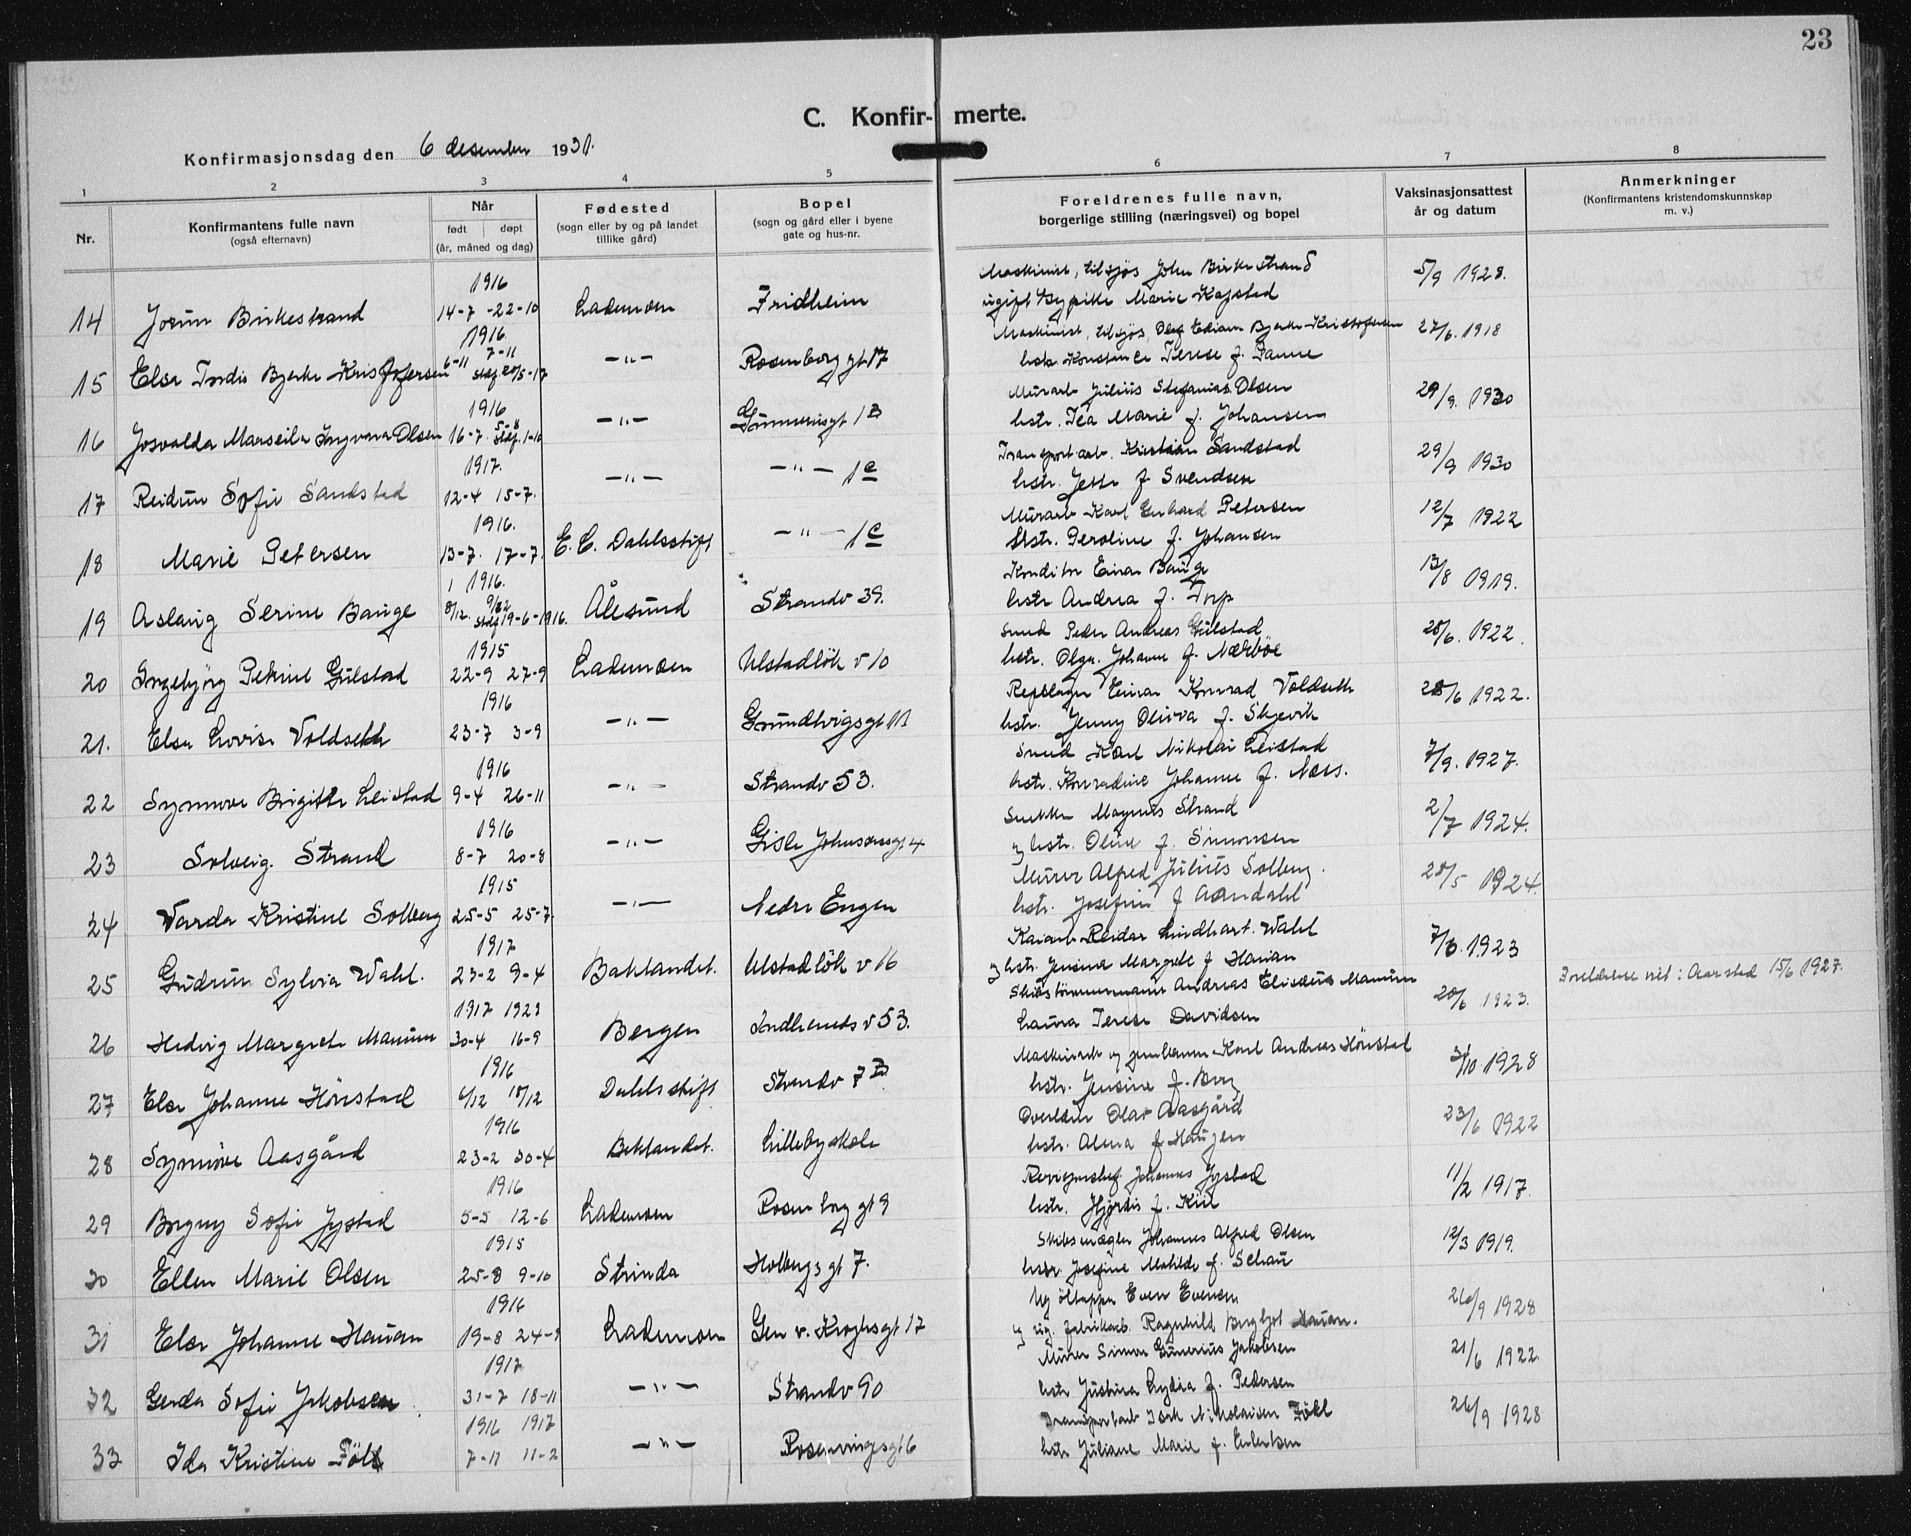 23
C. Konfir- merte.
Konfirmasjonsdag den 6 desember 1931.
1 2 3 4 5 6 7 8
Nr.
Konfirmantens fulle navn
(også efternavn)
Når
født døpt
(år, måned og dag)
Fødested
(sogn eller by og på landet
tillike gård)
Bopel
(sogn og gård eller i byene
gate og hus-nr.
Foreldrenes fulle navn,
borgerlige stilling (næringsvei) og bopel
Vaksinasjonsattest
år og datum
Anmerkninger
(Konfirmantens kristendomskunnskap
m. v.)
1916 Maskinist, tilsjøs John Birkestrand 5/9 1928.
14 Jorun Birkestrand 14-7 -22-10 Lademoen Fridheim ugift Marie
1916 Maskinist, tilsjøs, Olaf Bjerke-Kristofersen 27/6. 1918
15 Else Tordis Bjerke Kristofersen 6-11 7-11 20/5-17 -"- Rosenborg gt 17 hstr. Konstance Terese f.
1916 Murarb Julius Stefanias Olsen 29/9. 1930
16 Ingvara Olsen 16-7. 5-8 -"- 1B hstr. Tea Marie f. Johansen
1917. Transportarb. Kristian Sandstad 29/9 1930
17 Reidun Sofie Sandstad 12-4 15-7. -"- -"- 1c hstr. Jette f Svendsen
1916. Murarb Karl Gerhard Petersen 12/7 1922
18 Marie Petersen 13-7. 17-7. E. C. Dahlsstift -"- 1c hstr. Peroline f. Johansen
1916. Konditor Einar Bauge 13/8 1919.
19 Aslaug Serine Bauge 8/12. 19-6-1916. Ålesund Strandv 39. hstr Andrea f. Torp
1915 Smed Peder Andreas Gulstad 28/6. 1922.
20 Ingebjørg Petrine Gulstad 22-9 27-9 Lademoen Ulstadløk v 10 hstr. Olga Johanne f. Nærbøe
1916 Repslager Einar Konrad Voldseth 28/6 1922.
21. Else Lovise Voldseth 23-7 3-9 -"- Grundtvigsgt 11 hstr. Jenny Oliva f. Skjevik
1916 Smed Karl Nikolai Leistad 7/9. 1927.
22 Synnøve Brigitte Leistad 9-4 26-11 -"- Strandv 53. hstr. Konradine Johanne f. Næss.
1916 Snekker Magnus Strand 2/7 1924.
23 Solveig Strand 8-7 20-8 -"- Gisle Johnsonsgt 4 og hstr. Oline f. Simonsen
1915 Murer Alfred Julius Solberg. 28/5 1924.
24 Varda Kristine Solberg 25-5 25-7 -"- Nedre Engen hstr. Josefine f Aandahl
1917 Kaiarb Reidar Lindhart. Wahl 7/8. 1923
25 Gudrun Sylvia Wahl. 23-2 9-4 Baklandet. Ulstadløk v 16 og hstr. Jensine Margrete f Hauan
1917 1923 Skibstømmermann Andreas Mamum 20/6 1923. Foreldrene viet: 15/6 1927.
26 Hedvig Margrete 30-4 16-9 Bergen Indherreds v 53. Laura Terese Davidsen
1916 Maskinarb og Karl Andreas Hønstad 31/10 1928
27 Else Johanne Hønstad 6/12 18/12 Dahlsstift Strandv 7B hstr. Jensine f. Berg
1916 Overlærer Olav Aasgård 23/6 1922
28 Synnøve Aasgård 23-2 30-4 Baklandet. Lillebyskole hstr. Alma f Haugen
1916 Revisjonschef Johannes Jystad 11/2 1917.
29 Borgny Sofie Jystad 5-5 12-6 Lademoen Rosenborg gt 9 hstr. Hjørdis f. Kiil
1915 Skibsmægler Johannes Alfred Olsen 12/3 1919.
30 Ellen Marie Olsen 25-8 9-10 Strinda Holbergs gt 7. hstr Josefine Matilde f. Schau
1916 Ug øltapper Even Evensen 26/9 1928
31 Else Johanne Hauan 19-8 24-9 Lademoen Gen v. Kroghsgt 17 og ug. fabrikarb. Ragnhild Bergljot Hauan.
1917 Murer Simon Gunerius Jakobsen 21/6 1922.
32 Gerda Sofie Jakobsen 31-7 18-11 -"- Strandv 90 hstr Justina Lydia f. Pedersen
1916 1917 Transportarb Isak Nikolaisen Föll 26/9 1928
33 Ida Kristine Föll 7-11 11-2 -"- Rosenvingesgt 6 hstr Juliane Marie f.